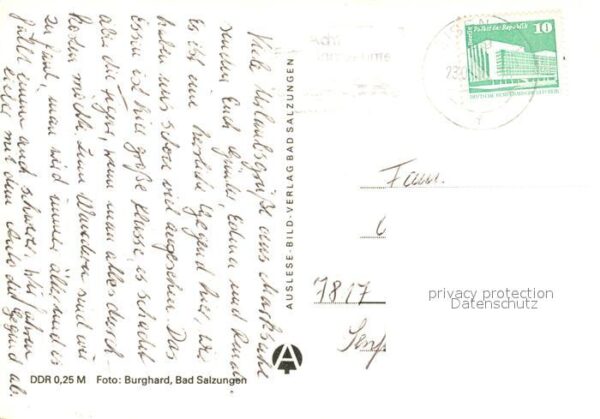 Viele Urlaubsgrüße aus Marksuhl
senden Euch Günter, Edina und
Es ist eine herliche Gegend hier, wir
haben uns schon viel angesehen. Das
Essen ist hier große Klasse, es schadet
aber die Figur, wenn man alles durch-
kosten möchte. Zum Wandern sind wir
zu faul, man wird immer älter und es
fällt immer auch schwer, wir fahren
lieber mit dem Auto die Gegend ab.
AUSLESE-BILD-VERLAG BAD SALZUNGEN
DDR 0,25 M Foto: Burghard, Bad Salzungen
Berlin Palast der Republik
10
DEUTSCHE DEMOKRATISCHE REPUBLIK
Fam.
7817
privacy protection
Datenschutz